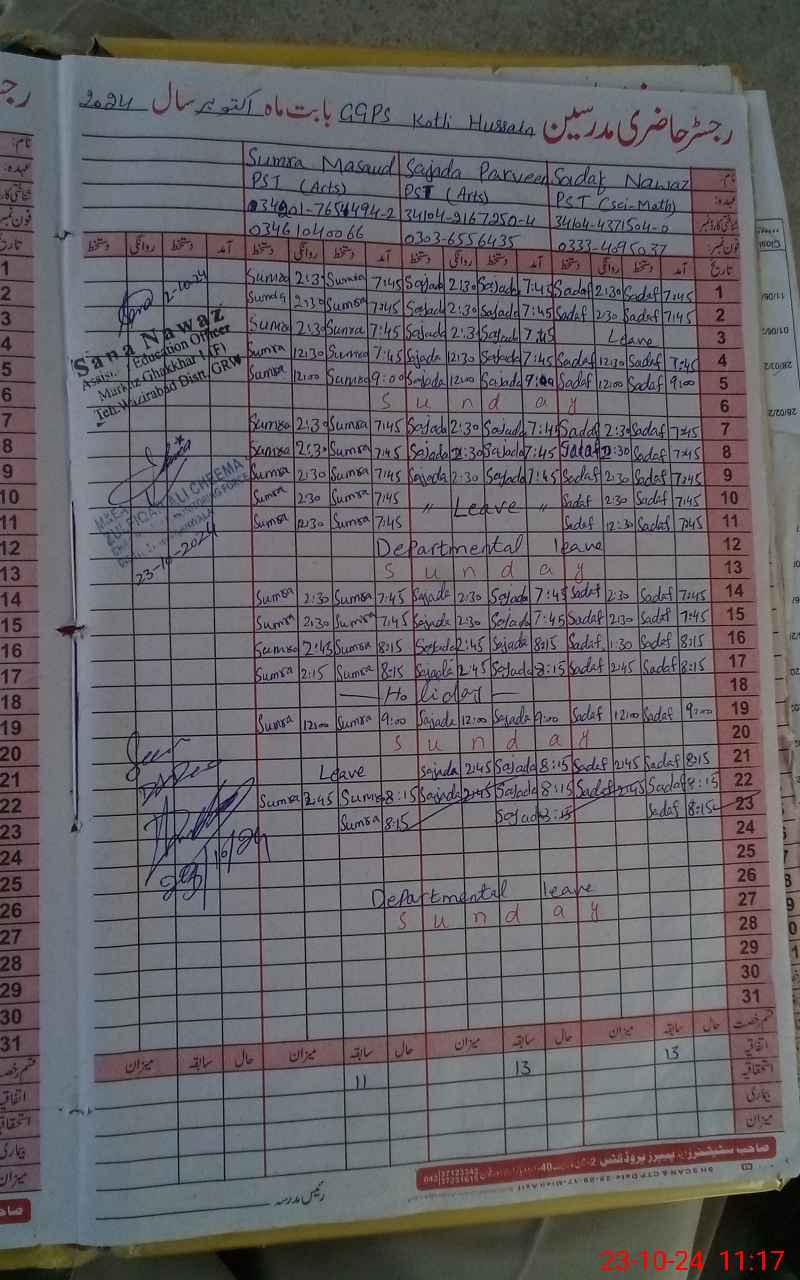 رجسٹر حاضری مدرسین GGPS Kotli Hussain بابت ماہ اکتوبر سال 2024
نام: Sadaf Nawaz Sajada Parveen Sumra Masaud
عہدہ: PST (Sci-Math) PST (Arts) PST (Arts)
شناختی کارڈ نمبر 34104-4371504-0 34104-9167250-4
فون نمبر: 0333-4095037 0303-6556435 03461040066
تاریخ آمد دستخط روانگی دستخط آمد دستخط روانگی دستخط آمد دستخط روانگی دستخط آمد دستخط روانگی دستخط
1 7:45 Sadaf 2:30 Sadaf 7:45 Sajada 2:30 Sajada 7:45 Sumra 2:30 Sumra
2 7:45 Sadaf 2:30 Sadaf 7:45 Sajada 2:30 Sajada 7:45 Sumra 2:30 Sumra
3 Leave 7:45 Sajada 2:30 Sajada 7:45 Sumra 2:30 Sumra
4 7:45 Sadaf 12:30 Sadaf 7:45 Sajada 12:30 Sajada 7:45 Sumra 12:30 Sumra
5 9:00 Sadaf 12:00 Sadaf 9:00 Sajada 12:00 Sajada 9:00 Sumra 12:00 Sumra
6 Sunday
7 7:45 Sadaf 2:30 Sadaf 7:45 Sajada 2:30 Sajada 7:45 Sumra 2:30 Sumra
8 7:45 Sadaf 2:30 Sadaf 7:45 Sajada 2:30 Sajada 7:45 Sumra 2:30 Sumra
9 7:45 Sadaf 2:30 Sadaf 7:45 Sajada 2:30 Sajada 7:45 Sumra 2:30 Sumra
10 7:45 Sadaf 2:30 Sadaf " Leave " 7:45 Sumra 2:30 Sumra
11 7:45 Sadaf 12:30 Sadaf 7:45 Sumra 12:30 Sumra
12 Departmental leave
13 Sunday
14 7:45 Sadaf 2:30 Sadaf 7:45 Sajada 2:30 Sajada 7:45 Sumra 2:30 Sumra
15 7:45 Sadaf 2:30 Sadaf 7:45 Sajada 2:30 Sajada 7:45 Sumra 2:30 Sumra
16 8:15 Sadaf 1:30 Sadaf 8:15 Sajada 2:45 Sajada 8:15 Sumra 2:45 Sumra
17 8:15 Sadaf 2:45 Sadaf 8:15 Sajada 2:45 Sajada 8:15 Sumra 2:15 Sumra
18 — Holiday —
19 9:00 Sadaf 12:00 Sadaf 9:00 Sajada 12:00 Sajada 9:00 Sumra 12:00 Sumra
20 Sunday
21 8:15 Sadaf 2:45 Sadaf 8:15 Sajada 2:45 Sajada Leave
22 8:15 Sadaf 2:45 Sadaf 8:15 Sajada 2:45 Sajada 8:15 Sumra 2:45 Sumra
23 8:15 Sadaf 8:15 Sajada 8:15 Sumra
24
25
26
27 Departmental leave
28 Sunday
29
30
31
قسم رخصت حال سابقہ میزان حال سابقہ میزان حال سابقہ میزان حال سابقہ میزان
اتفاقیہ 13 13 11
استحقاقیہ
بیماری
میزان
رئیس مدرسہ
2-10-24
Sana Nawaz
Assist. Education Officer
Markaz Ghakkhar-I (F)
Teh. Wazirabad Distt. GRW
ZULFIQAR ALI CHEEMA
23-10-2024
23/10/24
1
2
3
4
5
6
7
8
9
10
11
12
13
14
15
16
17
18
19
20
21
22
23
24
25
26
27
28
29
30
31
23-10-24 11:17